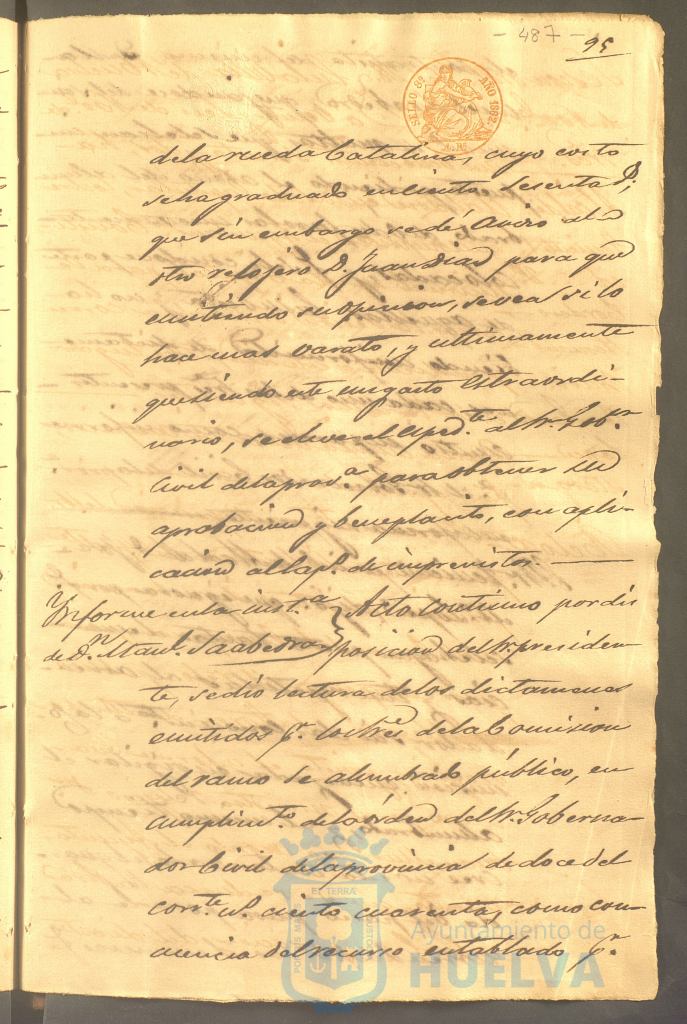 - 487 -
95
SELLO 8º AÑO 1862
dela rueda Catalina, cuyo costo
seha graduado enciento sesenta
que sin embargo sedé aviso al
otro relojéro D. Juan Diaz para que
emitiendo suopinion, sevea si lo
hace mas varato, y ultimamente
quesiendo este ungasto estraordi-
nario, se eleve el esped.te al Sr. Gob.or
Civil delaprov.a para obtener su
aprobacion y beneplacito, con apli-
cacion al Cap.o de imprevistos.
Ynforme enla inst.a
de D.n Man.l Saabedra
Acto continuo por dis
posicion del Sr. presiden-
te, sedió lectura delos dictamenes
emitidos p.r los Sres. dela Comision
del ramo de alumbrado público, en
cumplim.to dela órden del Sr. Goberna-
dor Civil dela provincia de doce del
corr.te n.º ciento cuarenta, como con-
cuencia del recurso entablado p.r
Ayuntamiento de
HUELVA